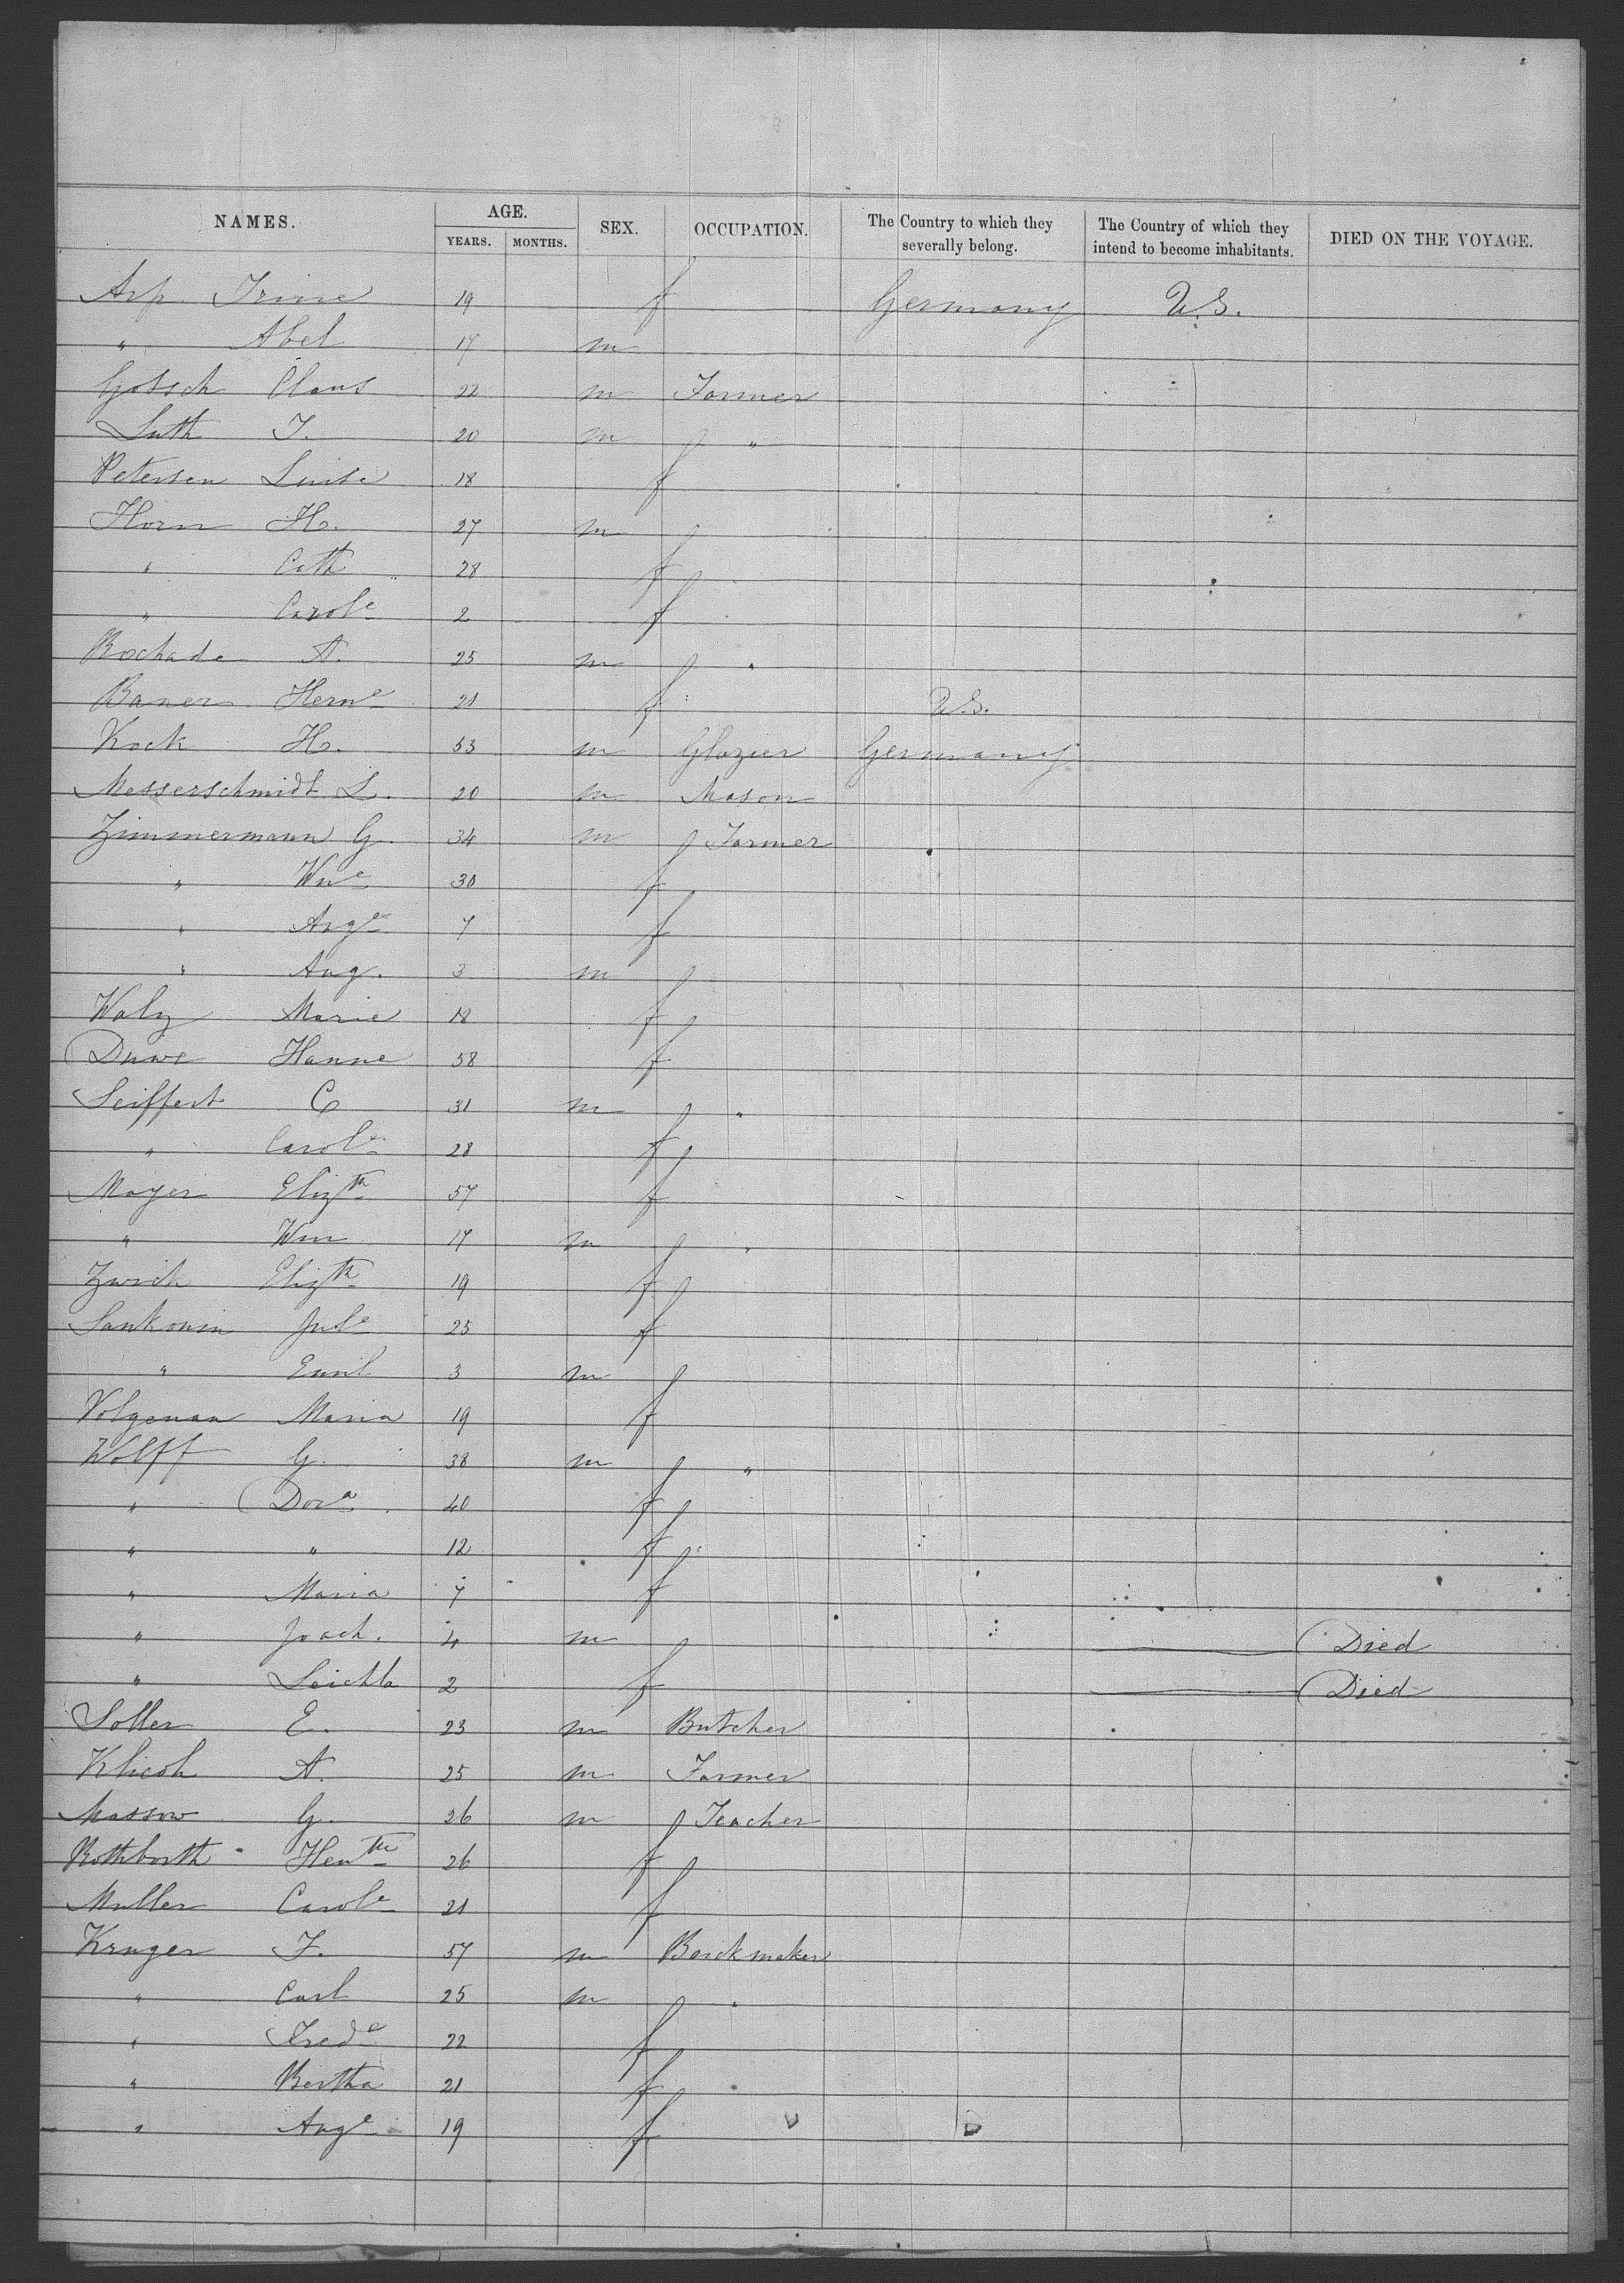 NAMES. AGE. SEX. OCCUPATION. The Country to which they severally belong. The Country of which they intend to become inhabitants. DIED ON THE VOYAGE.
YEARS. MONTHS.
Arp Irine 19 f Germany U.S.
" Abel 17 m
Gotsch Claus 22 m Farmer
Luth J. 20 m "
Petersen Luise 18 f
Horn H. 27 m
" Cath 28 f
" Carole 2 f
Rochade A. 25 m "
Bauer Herme 21 f U.S.
Kock H. 53 m Glazier Germany
Messerschmidt L. 20 m Mason
Zimmermann G. 34 m Farmer
" Wme 30 f
" Auge 7 f
" Aug. 3 m
Walz Marie 18 f
Duwe Hanne 58 f
Seiffert C 31 m "
" Carole 28 f
Mayer Elizth 57 f
" Wm 17 m "
Zwick Elizth 19 f
Sankowin Jule 25 f
" Emil 3 m
Volgenau Maria 19 f
Wolff G. 38 m "
" Dora 40 f
" " 12 f
" Maria 7 f
" Joach. 4 m Died
" 2 f Died
Soller E. 23 m Butcher
A. 25 m Farmer
Massow G. 26 m Teacher
Rothbarth Hentte 26 f
Muller Carole 21 f
Kruger F. 57 m Brickmaker
" Carl 25 m "
" Frede 22 f
" Bertha 21 f
" Auge 19 f